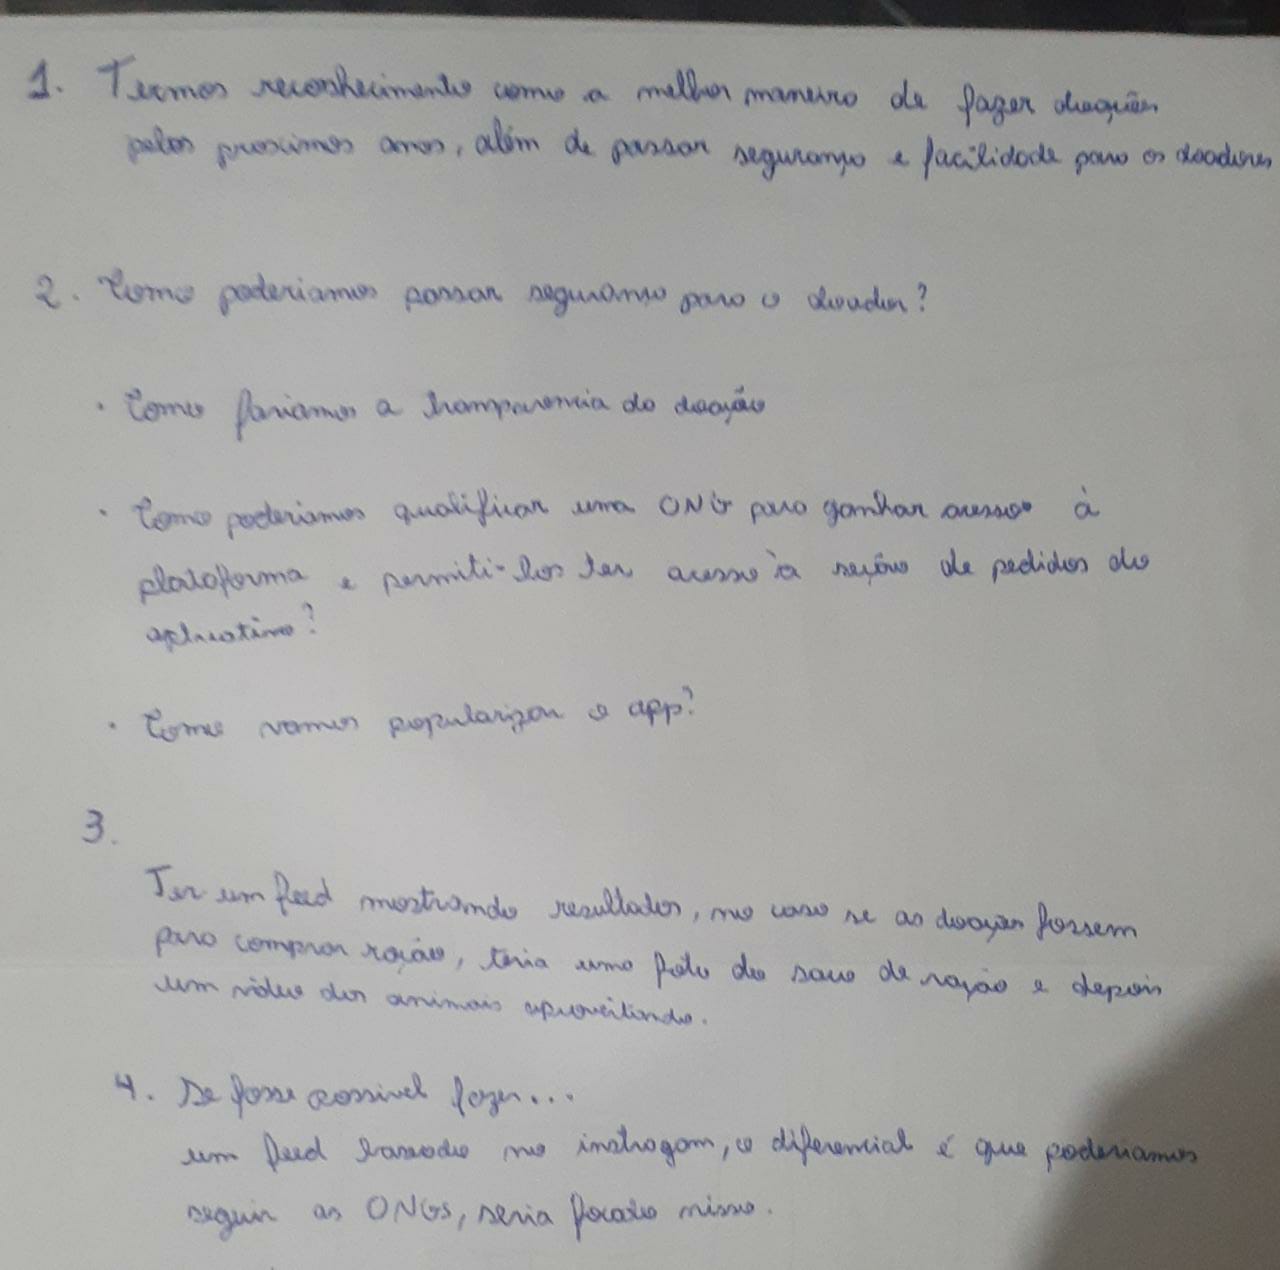 1. Termos reconhecimento como a melhor maneira de fazer doações
pelos proximos anos, além de passar segurança e facilidade para os doadores
2. Como poderiamos passar segurança para o doador?
· Como fariamos a transparencia da doação
· Como poderiamos qualificar uma ONG para ganhar acesso à
plataforma e permiti-los ter acesso à seção de pedidos do
aplicativo?
· Como vamos popularizar o app?
3.
Ter um feed mostrando resultados, no caso se as doações fossem
para comprar ração, teria uma foto do saco de ração e depois
um video dos animais aproveitando.
4. Se fosse possivel fazer...
um feed baseado no instragam, o diferencial é que poderiamos
seguir as ONGS, seria focado nisso.